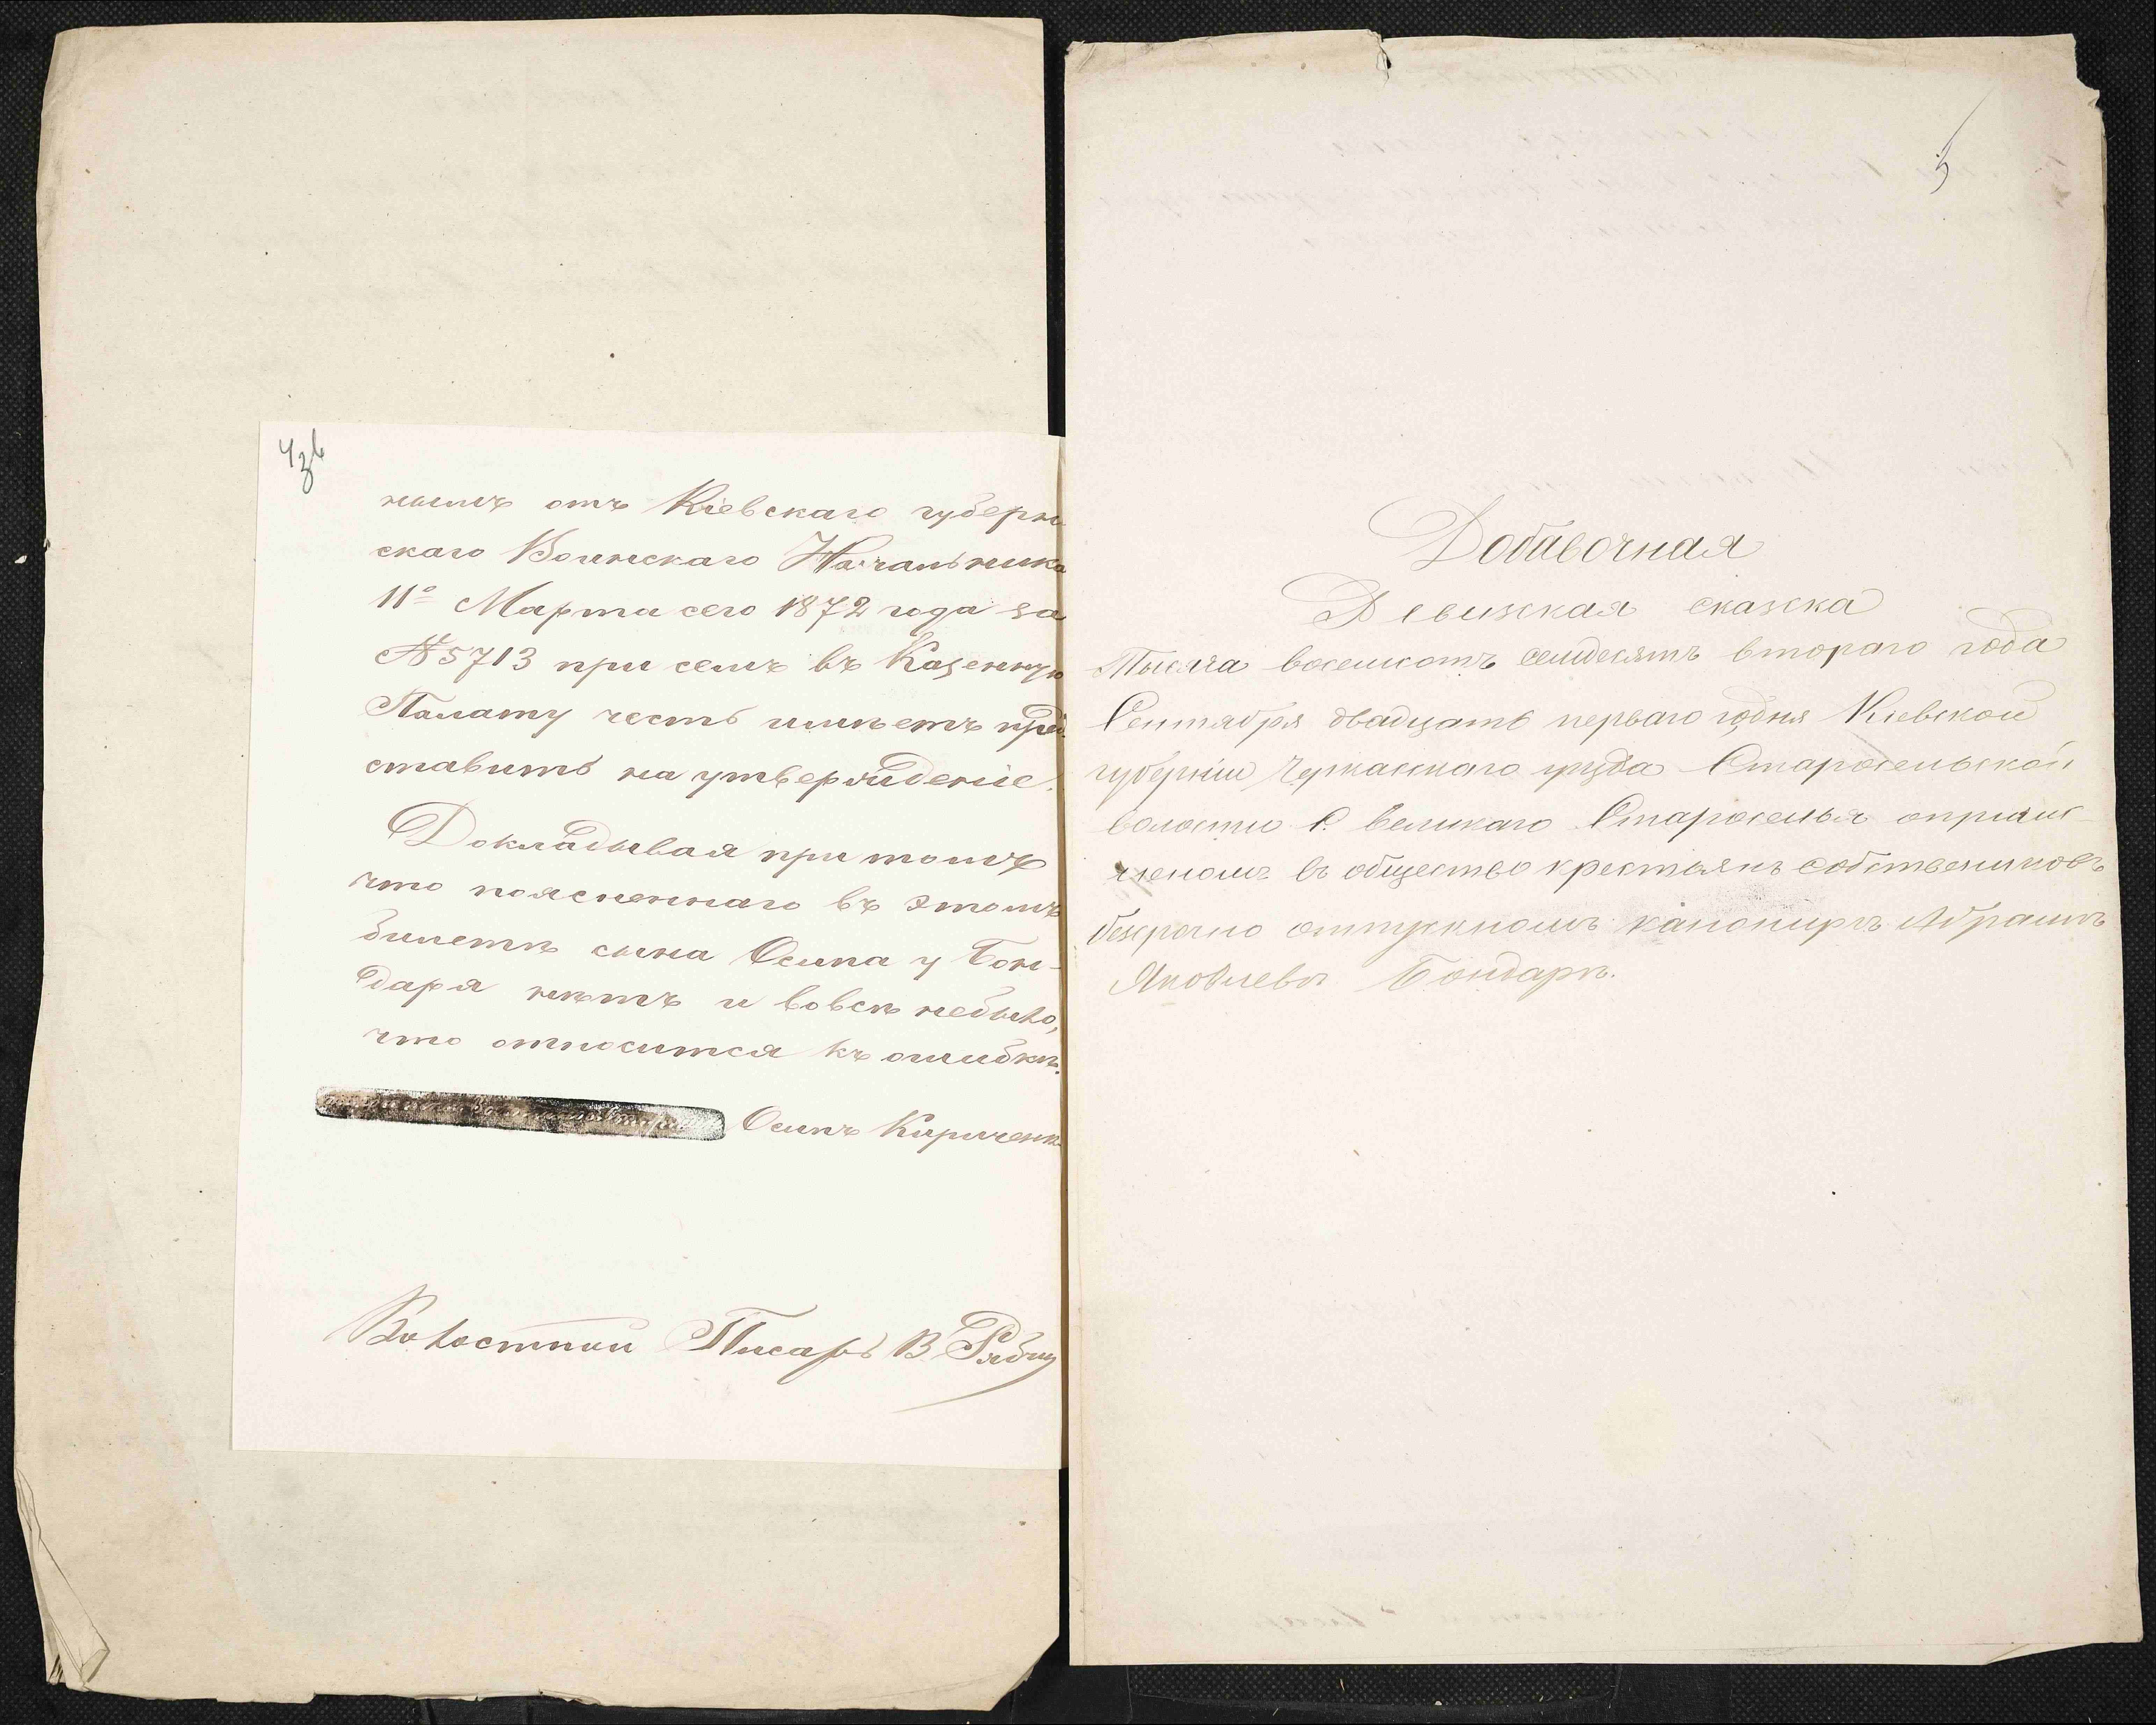 4зв
нымъ отъ Кіевскаго губерн
скаго Воинскаго Начальника
11º Марта сего 1872 года за
№ 5713 при семъ въ Казенную
Палату честь имѣетъ пред
ставить на утвержденіе.
Докладывая при томъ
что поясненнаго въ этомъ
билетѣ сына Осипа у Бон-
даря нѣтъ и вовсѣ небыло,
что относится къ ошибкѣ.
Осипъ Кириченк
Волостной Писарь В. Рябчу
5
Добавочная
Ревизская сказка
Тысяча восемсотъ семдесятъ втораго года
Сентября двадцать перваго дня Кіевской
губерніи Черкасскаго уѣзда Старосельской
волости С. Великаго Староселья о причис
леномъ въ общество крестьянъ собствениковъ
безсрочно отпускномъ канонирѣ Абрамѣ
Яковлевѣ Бондарѣ.